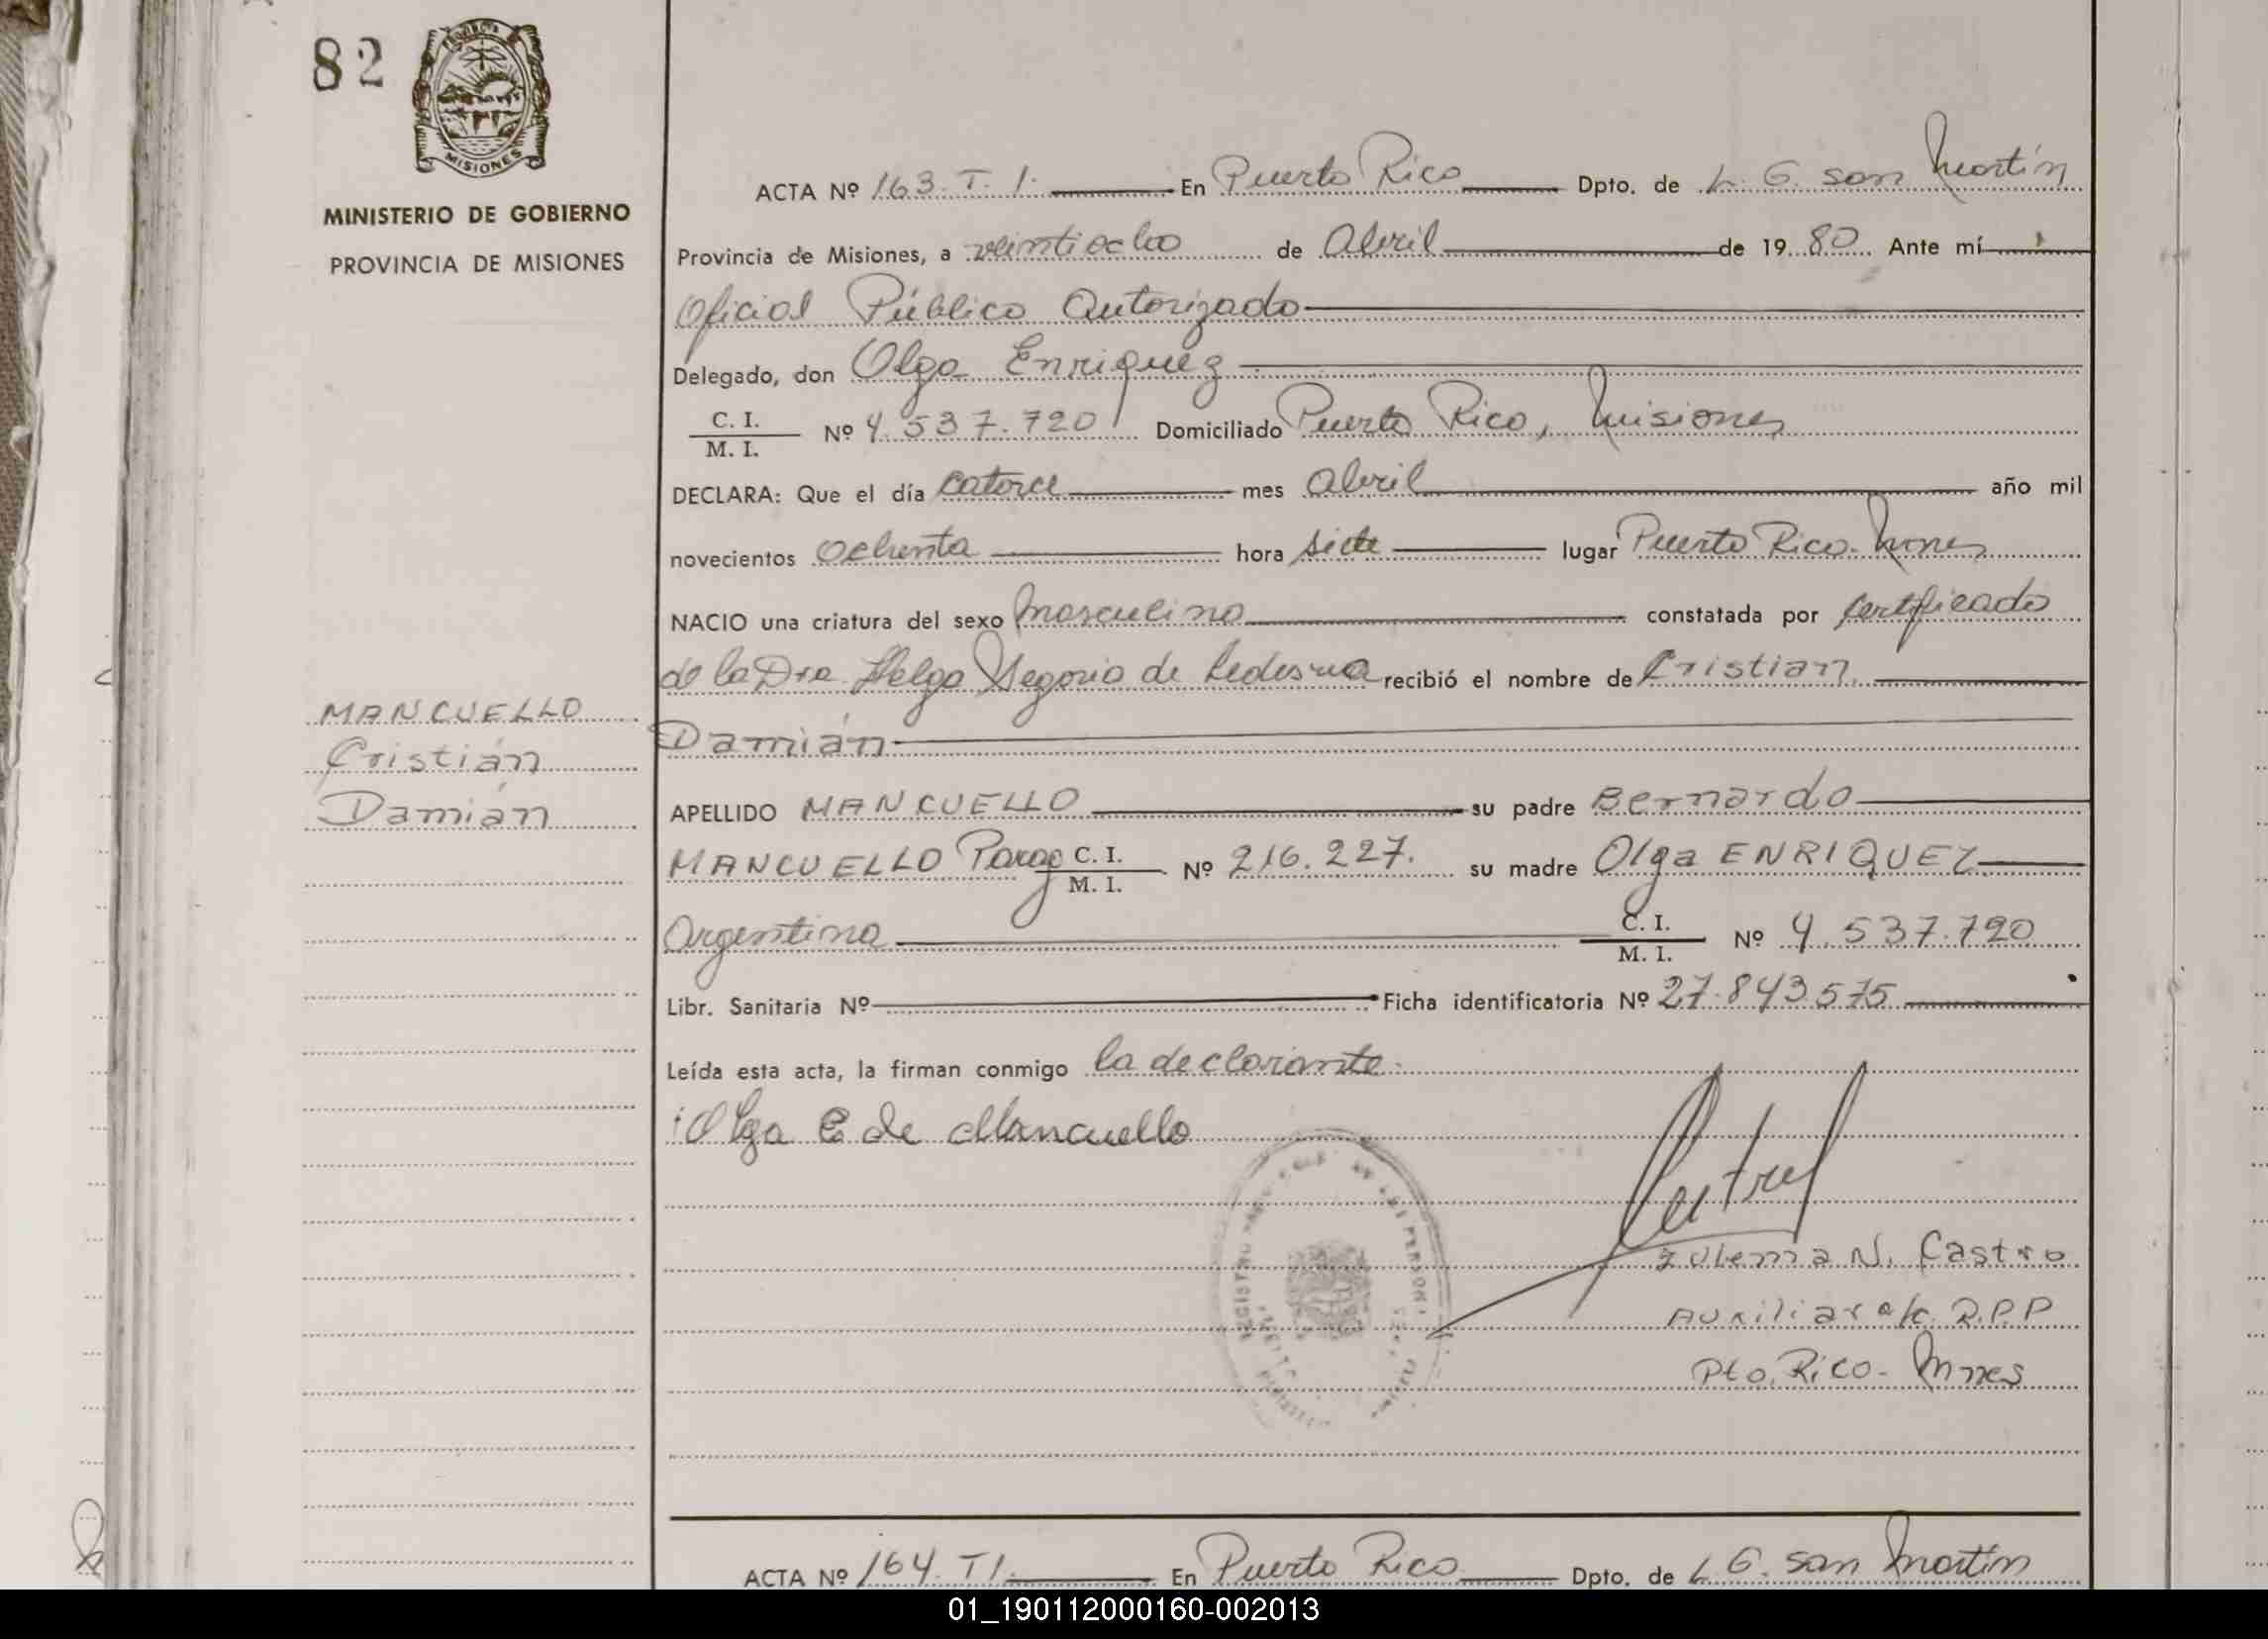 82
PROVINCIA
MISIONES
MINISTERIO DE GOBIERNO
PROVINCIA DE MISIONES
MANCUELLO
Cristián
Damián
ACTA Nº 163. T. 1. En Puerto Rico Dpto. de L. G. san Martín
Provincia de Misiones, a veintiocho de Abril de 1980 Ante mí
Oficial Público Autorizado
Delegado, don Olga Enriquez
C. I. / M. I. Nº 4.537.720 Domiciliado Puerto Rico, Misiones
DECLARA: Que el día catorce mes Abril año mil
novecientos ochenta hora siete lugar Puerto Rico. Mnes
NACIO una criatura del sexo masculino constatada por certificado
de la Dra. Helga Segovia de Ledesma recibió el nombre de Cristian
Damián
APELLIDO MANCUELLO su padre Bernardo
MANCUELLO Parag C. I. / M. I. Nº 216.227. su madre Olga ENRIQUEZ
Argentina C. I. / M. I. Nº 4.537.720
Libr. Sanitaria Nº Ficha identificatoria Nº 27.843.575
Leída esta acta, la firman conmigo la declarante.
Olga E de Mancuello
Zulema N. Castro
Auxiliar a/c. R.P.P
Pto. Rico - Mnes
ACTA Nº 164. T1. En Puerto Rico Dpto. de L G. san Martín
01_190112000160-002013